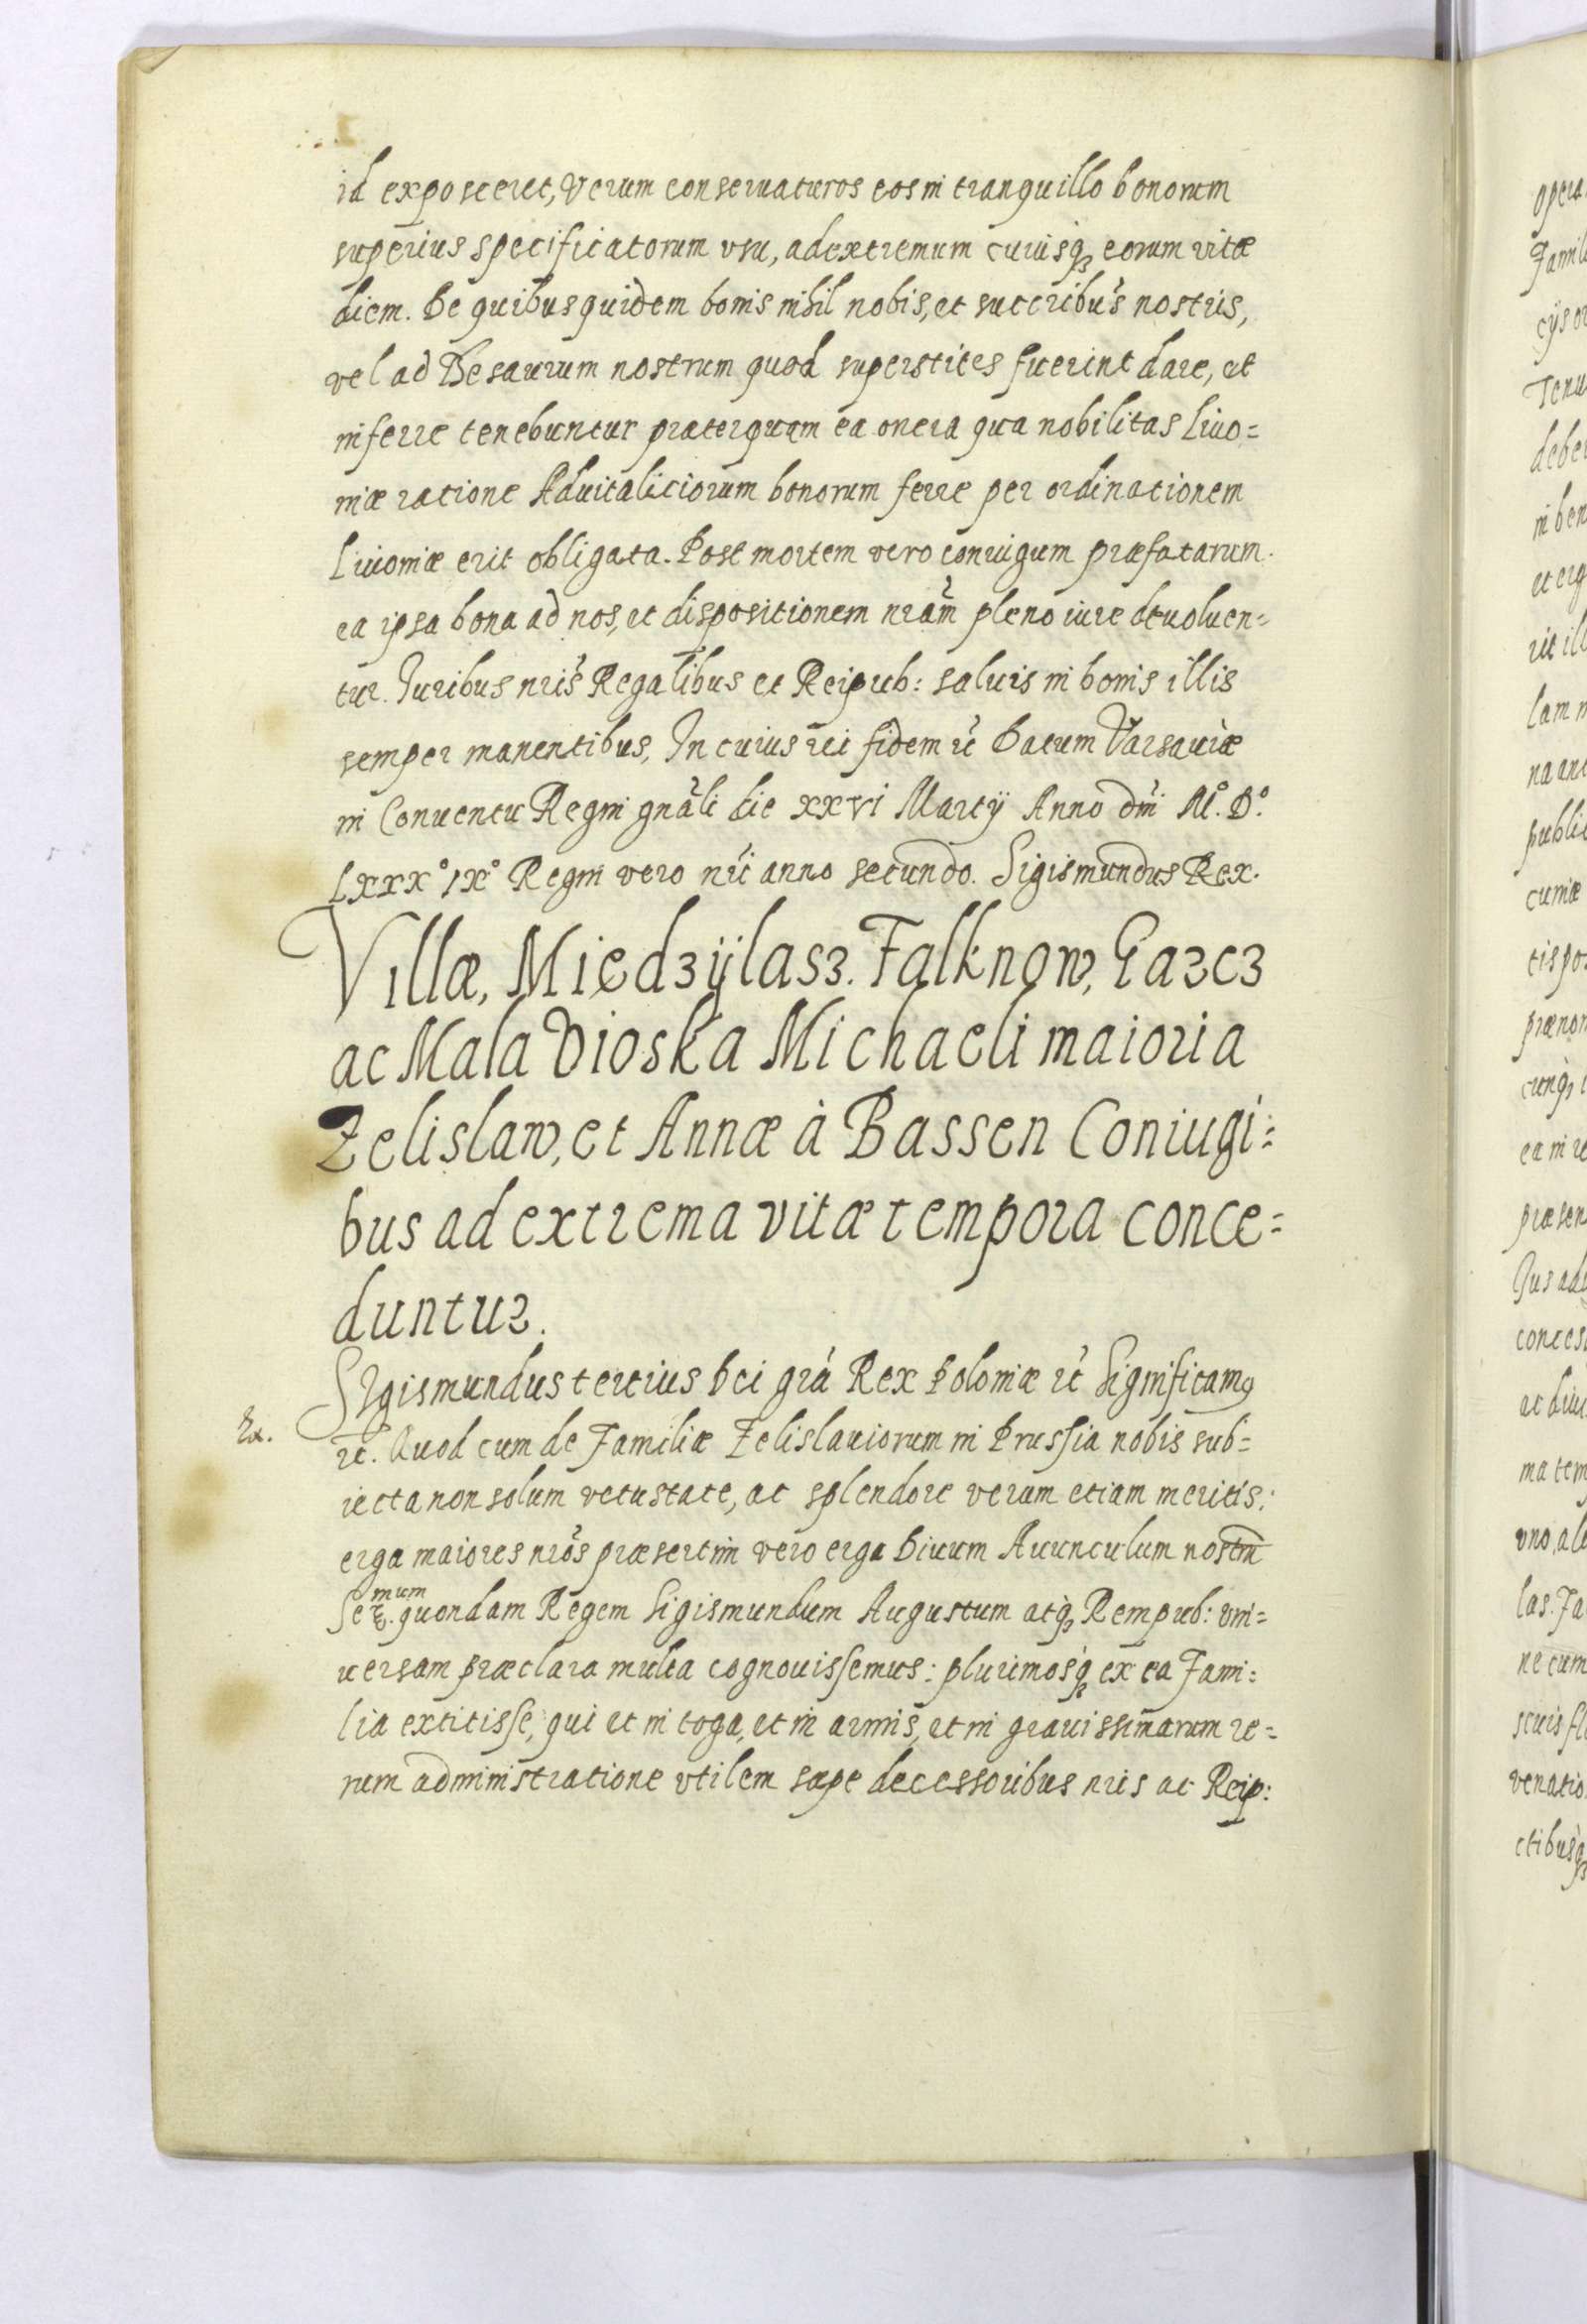 id exposceret, Verum conseruaturos eos in tranquillo bonorum
superius specificatorum vsu, ad extremum cuiusq; eorum vitæ
diem. De quibus quidem bonis nihil nobis, et succribus nostris,
vel ad Thesaurum nostrum quod superstites fuerint dare, et
inferre tenebuntur praterquam ea onera qua nobilitas Liuo=
niæ ratione Aduitaliciorum bonorum ferre per ordinationem
Liuoniæ erit obligata. Post mortem vero coniugum præfatarum.
ea ipsa bona ad nos, et dispositionem nram pleno iure deuoluen=
tur. Iuribus nris Regalibus et Reipub: saluis in bonis illis
semper manentibus, In cuius rei fidem rc Datum Varsauiæ
in Conuentu Regni gnali die xxvi Martij Anno dni M°. D°.
Lxxx° ix° Regni vero nri anno secundo. Sigismundus Rex.
Villæ, Miedzÿlasz. Falknow, Gazcz
ac Mala Vioska Michaeli maioria
Zelislaw, et Annæ à Bassen Coniugi=
bus ad extrema vitæ tempora conce=
duntur.
SIgismundus tertius Dei gra Rex Poloniæ rc Significamus
Ex.
rc. Quod cum de Familiæ Zelislauiorum in Prussia nobis sub=
iecta non solum vetustate, ac splendore verum etiam meritis:
erga maiores nros præsertim vero erga Diuum Auunculum nostrm
Ser.mum quondam Regem Sigismundum Augustum atq; Rempub: vni=
uersam præclara multa cognouissemus: plurimosq; ex ea Fami=
lia extitisse, qui et in toga, et in armis, et in grauissimarum re=
rum administratione vtilem sæpe decessoribus nris ac Reip: